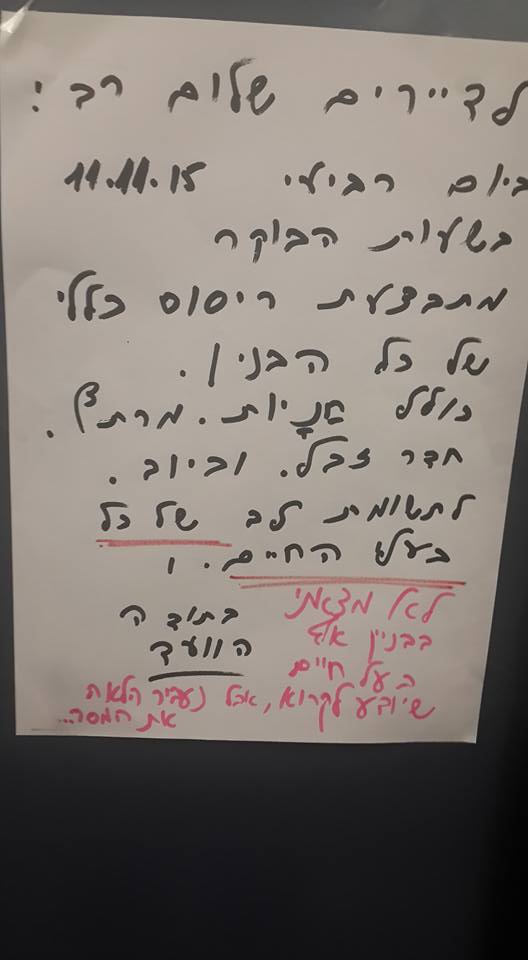 לדיירים שלום רב!
ביום רביעי 11.11.15
בשעות הבוקר
מתבצעת ריסוס כללי
של כל הבנין.
כולל חניות. מרתף.
חדר זבל. וביוב.
לתשומת לב של כל
בעלי החיים.
בתודה
הוועד
לא מצאתי
בבנין אף
בעל חיים
שיודע לקרוא, אבל נעביר הלאה
את המסר...